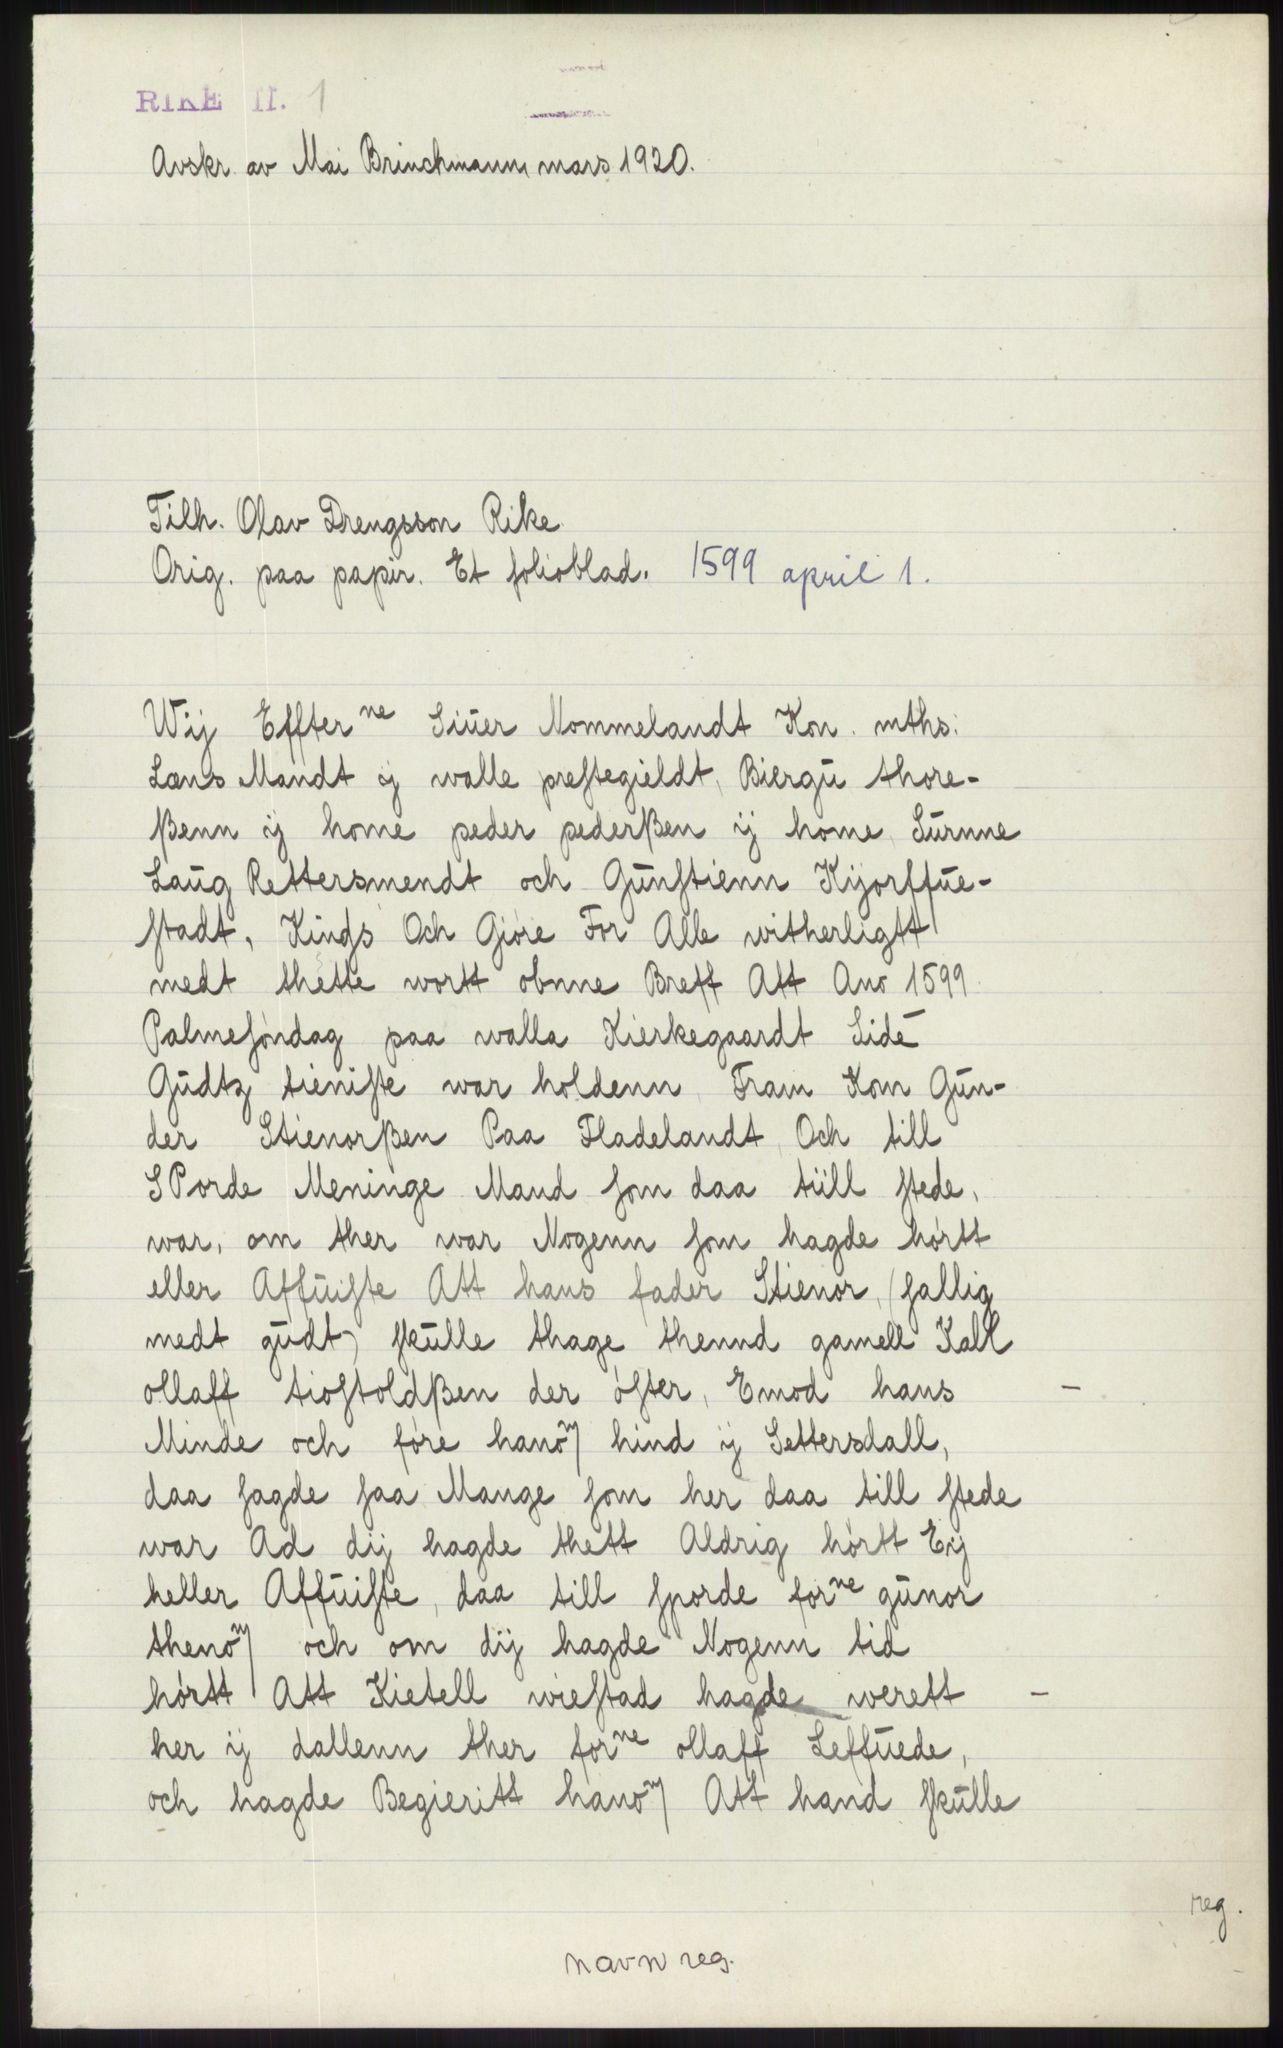 RIKE II. 1
Avskr. av Mai Brinchmann mars 1920.
Tilh. Olav Drengsson Rike
Orig. paa papir. Et folioblad. 1599 april 1.
Wij Effter ne Siūer Nommelandt Kon. mths:
Lens Mandt ij walle preſtegieldt, Biergū thore-
ßenn ij home peder pederßen ij home, Sūrnne
Laūg Rettersmendt och Gūnſtienn Kijorffūe-
ſtadt, Kinds Och Giöre For Alle witherligtt
medt thette wortt obnne Breff Att Ano 1599
Palmeſöndag paa walla Kierkegaardt Sidē
Gūdtz tieniſte war holdenn, Fram Kom Gūn-
der Stienorßen Paa Fladelandt, Och till
SPorde Meninge Mand ſom daa tiill ſtede,
war, om ther war Nogenn ſom hagde hörtt
eller Affūiſte Att hans fader Stienor, (ſallig
medt gūdt) ſkūlle thage thennd gamell Kall
ollaff tioſtoldßen der öſter, Emod hans -
Minde och före hanom hind ij Settersdall,
daa ſagde ſaa Mange ſom her daa till ſtede
war Ad dij hagde thett Aldrig hörtt Eij
heller Affūiſte, daa till ſporde for ne gūnor
thenom och om dij hagde Nogenn tid
hörtt Att Kietell wieſtad hagde werett -
her ij dallenn ther for ne ollaff Leffūede,
och hagde Begieritt hanom Att hand ſkūlle
reg.
navn reg.